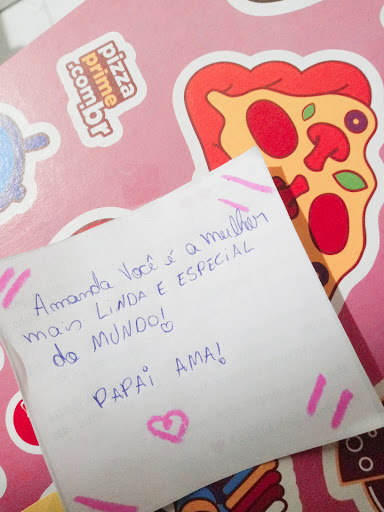 pizza
prime
.com.br
Amanda Você é a mulher
mais LINDA E ESPECIAL
do MUNDO!
PAPAi AMA!